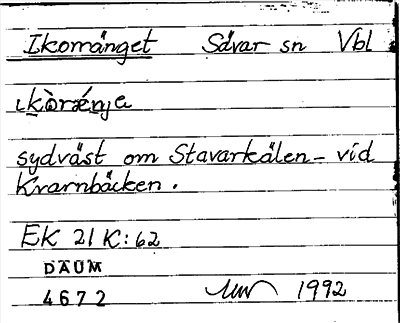 Ikornänget Sävar sn Vbl
ɩkòrǽnjɐ
sydväst om Stavarkälen - vid
Kvarnbäcken.
EK 21 K:62
DAUM
4672 1992